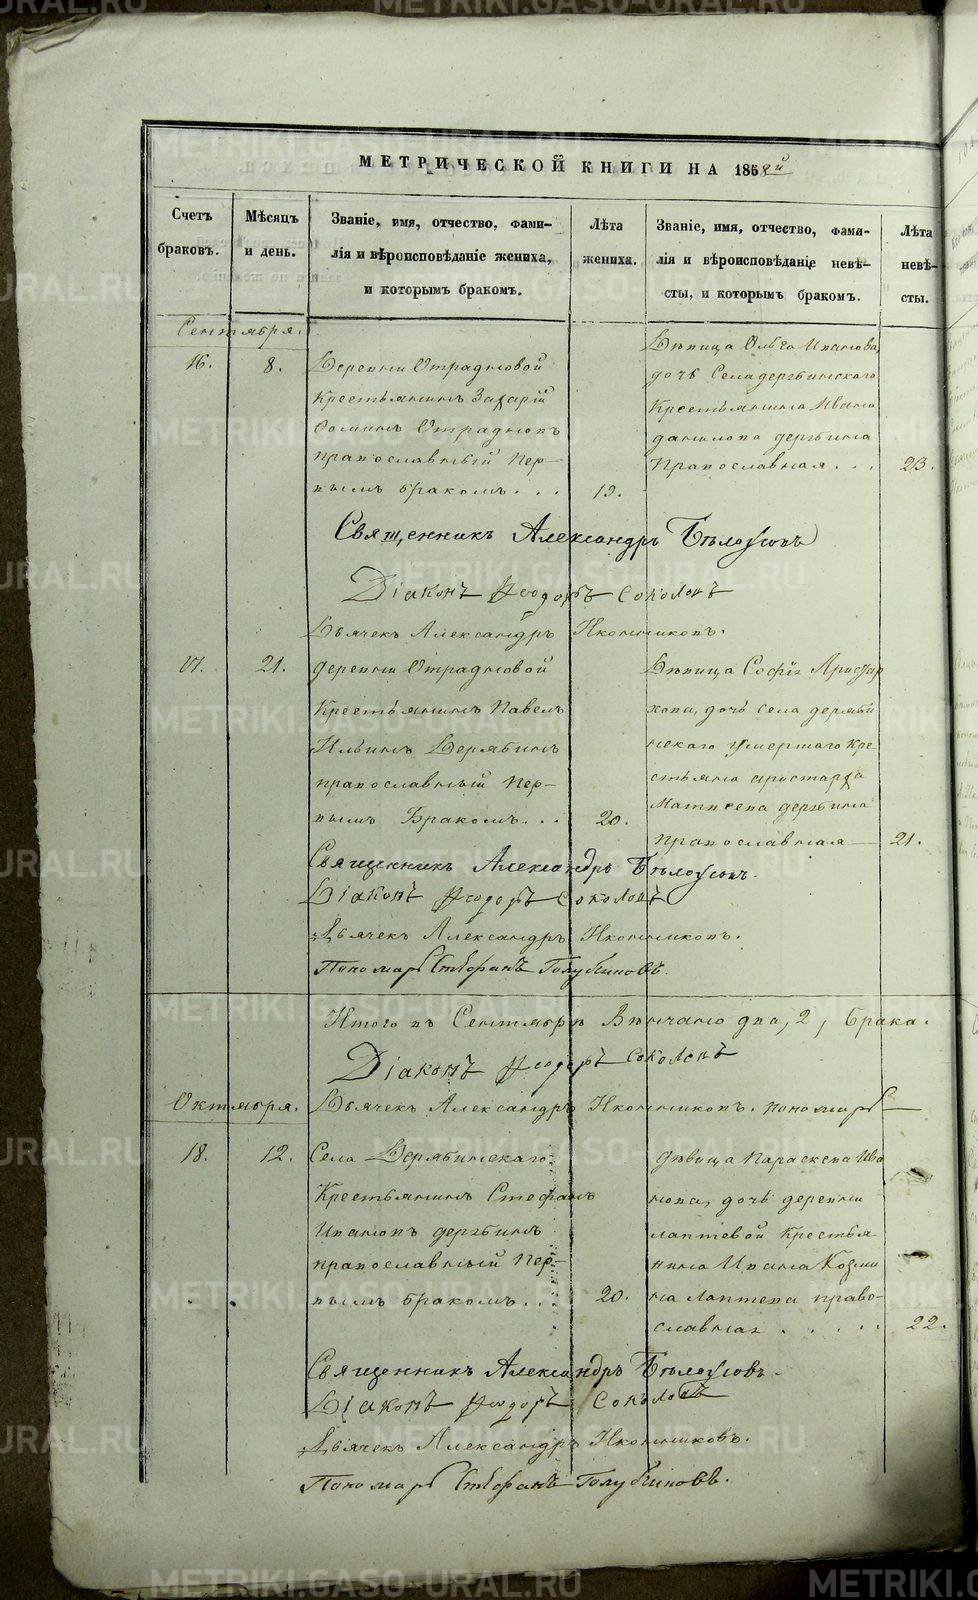 МЕТРИЧЕСКОЙ КНИГИ НА 1858й
Счетъ браковъ.
Мѣсяцъ и день.
Званіе, имя, отчество, фами-
лія и вѣроисповѣданіе жениха,
и которымъ бракомъ.
Лѣта жениха.
Званіе, имя, отчество, фами-
лія и вѣроисповѣданіе невѣ-
сты, и которымъ бракомъ.
Лѣта невѣ-
сты.
Сентября.
16. 8.
Деревни Отрадновой
Крестьянинъ Захарій
Ѳоминъ Отрадновъ
православный пер-
вымъ бракомъ...
19.
Дѣвица Ольга Иванова,
дочь Села дерябинскаго
Крестьянина Ивана
данилова дерябина
Православная...
23.
Священникъ Александръ Бѣлоусовъ
Діаконъ Ѳеодоръ Соколовъ
Дьячекъ Александръ Иконниковъ.
17. 21.
деревни Отрадновой
Крестьянинъ Павелъ
Ильинъ Дерябинъ
православный пер-
вымъ Бракомъ...
20.
Дѣвица Софія Аристар
хова, дочь села деряби
нскаго умершаго кре
стьянина аристарха
Матвеева дерябина
православная
21.
Священникъ Александръ Бѣлоусовъ.
Діаконъ Ѳеодоръ Соколовъ
Дьячекъ Александръ Иконниковъ.
Пономарь Стефанъ Голубчиковъ.
Итого въ Сентябрѣ Вѣнчано два, 2, брака.
Діаконъ Ѳеодоръ Соколовъ
Октября.
Дьячекъ Александръ Иконниковъ. пономарь
18. 12.
Села Дерябинскаго
Крестьянинъ Стефанъ
Ивановъ дерябинъ
православный пер-
вымъ бракомъ...
20.
дѣвица Параскева Ива
нова, дочь деревни
лаптевой Крестья
нина Ивана Козми
на Лаптева право-
славная.....
22.
Священникъ Александръ Бѣлоусовъ.
Діаконъ Ѳеодоръ Соколовъ
Дьячекъ Александръ Иконниковъ.
Пономарь Стефанъ Голубчиковъ.
METRIKI.GASO-URAL.RU